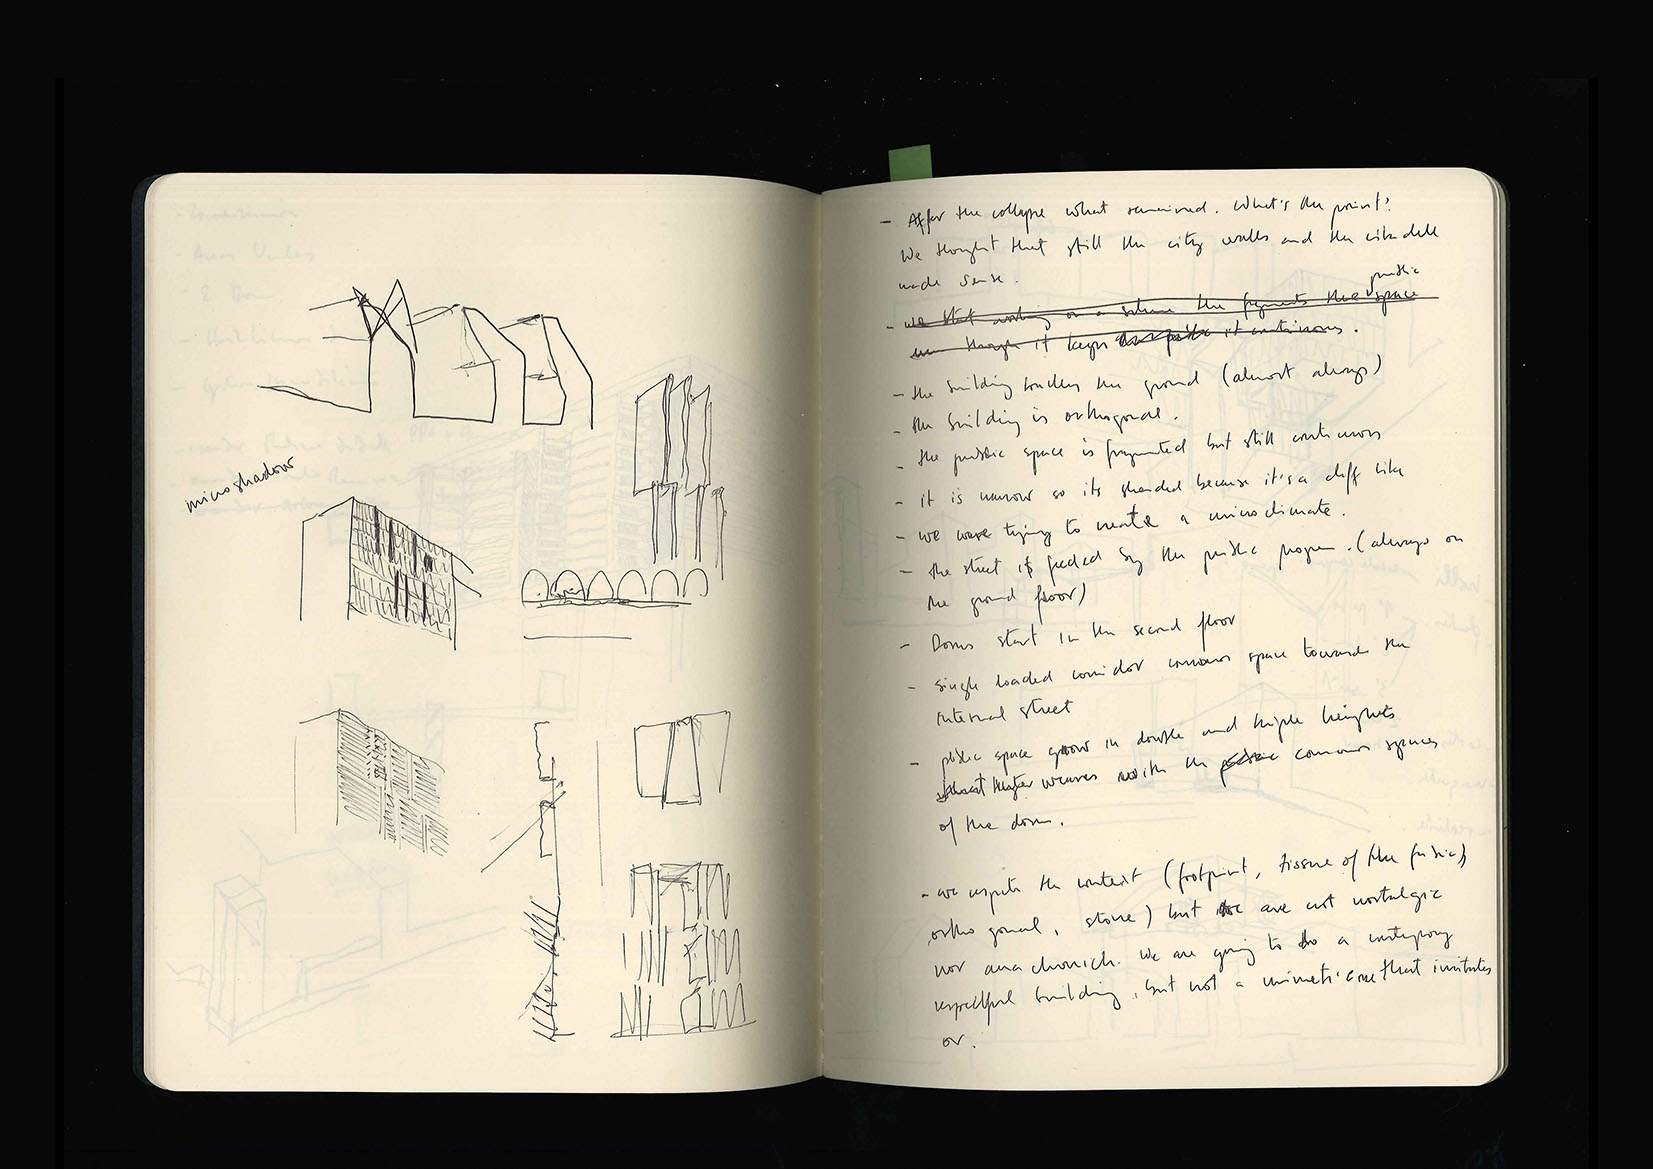 microshadow
- After the collapse what remained. What's the point?
We thought that still the city walls and the citadell
made sense.
public
- we start working on a scheme the fragments the space
even though it keeps it continuous.
- the building touches the ground (almost always)
- the building is orthogonal.
- the public space is fragmented but still continuous
- it is narrow so its shended because it's a cliff like
- we were trying to create a microclimate.
- the street is feeded by the public program. (always on
the ground floor)
- Dorms start in the second floor
- single loaded corridor common space towards the
internal street
- public space grow in double and triple heights
weaves with the public common spaces
of the dorm.
- we respect the context (footprint, tissue of the fabric,
orthogonal, stone) but we are not nostalgic
nor anachronich. We are going to do a
respectful building, but not a mimetic one that imitates
or.